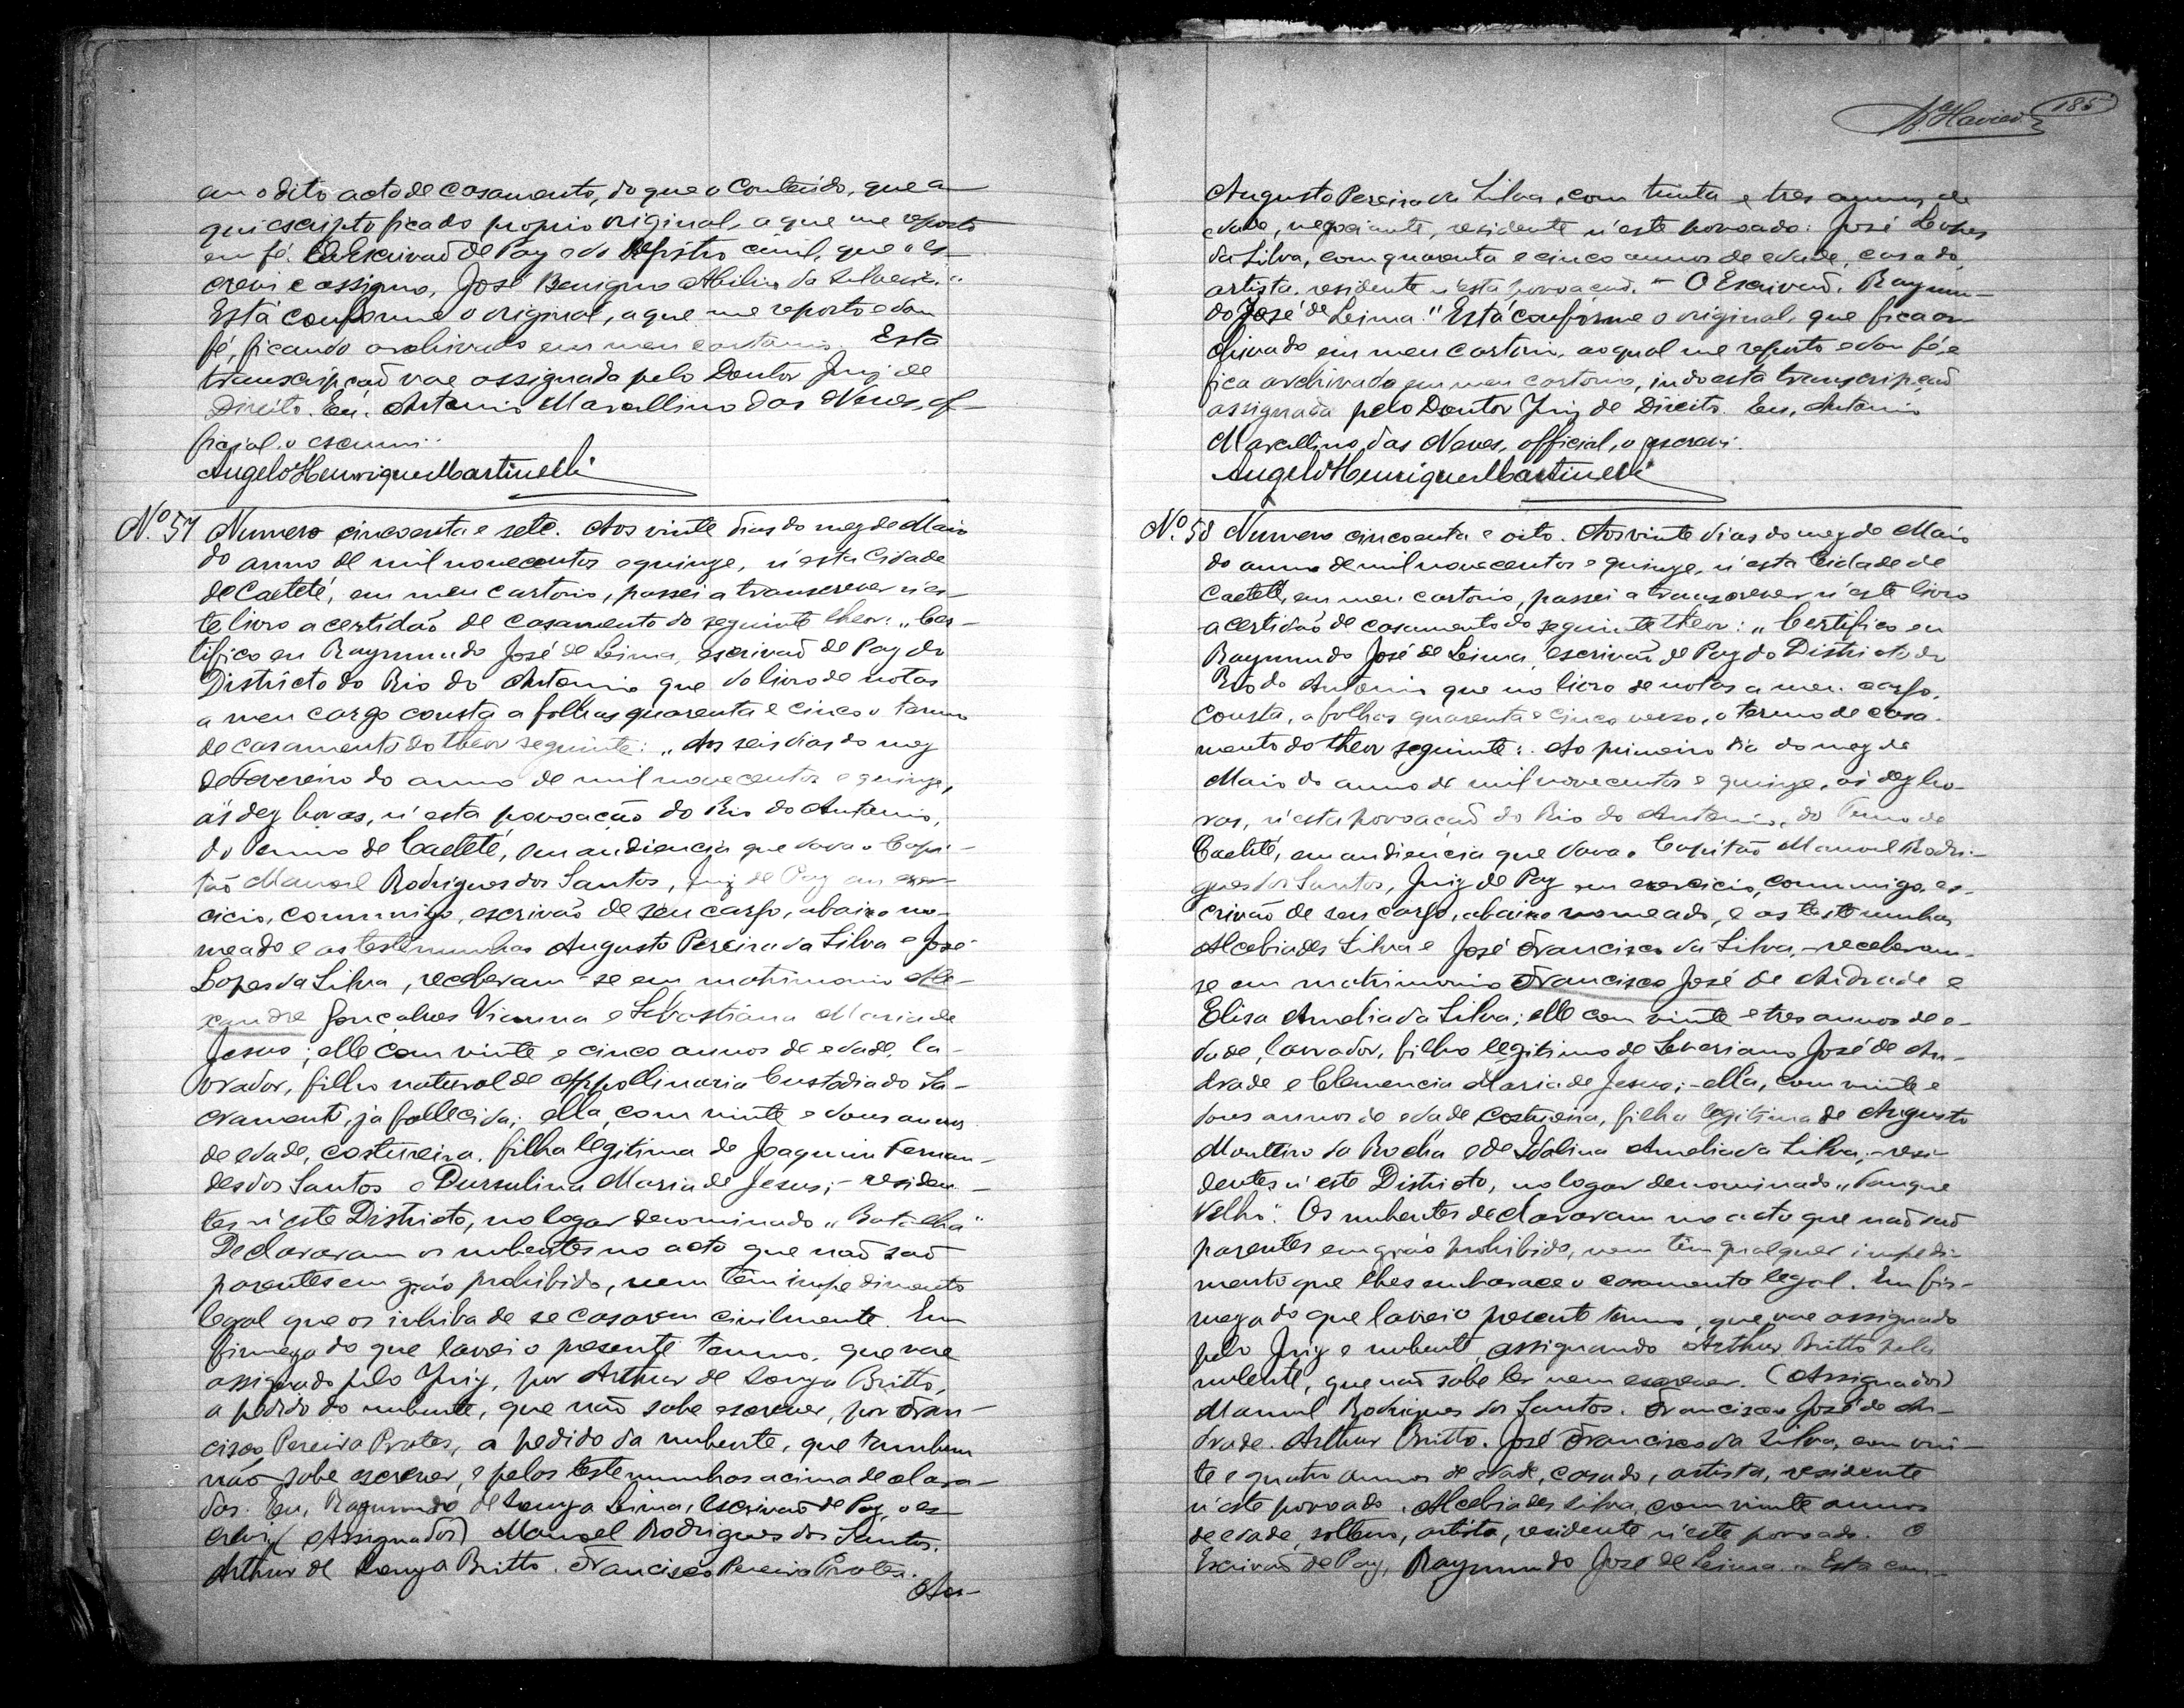 em o dito acto de casamento, do que o conteúdo, que a-
qui escripto fica do proprio original, a que me reporto
em fé. Eu Escrivaõ de Paz e do Registro civil, que o es-
crevi e assigno, José Benigno Abilio da Silveira."
Está conforme o original, a que me reporto e dou
fé, ficando archivado em meu cartorio. Esta
transcripçaõ vae assignada pelo Doutor Juiz de
Direito. Eu, Antonio Marcellino das Neves, of-
ficial o escrevi.
Angelo Henrique Martinelli
Nº 57 Numero cincoenta e sete. Aos vinte dias do mez de Maio
do anno de mil novecentos e quinze, n'esta Cidade
de Caeteté, em meu cartorio, passei a transcrever n'es-
te livro a certidão de casamento do seguinte theor: „Cer-
tifico eu Raymundo José de Leima, escrivaõ de Paz do
Districto do Rio do Antonio que do livro de notas
a meu cargo consta a folhas quarenta e cinco o termo
de casamento do theor seguinte: „Aos seis dias do mez
de Fevereiro do anno de mil novecentos e quinze,
ás dez horas, n'esta povoação do Rio do Antonio,
do Termo de Caeteté, em audiencia que dava o Capi-
tão Manoel Rodrigues dos Santos, Juiz de Paz em exer-
cicio, commigo, escrivão de seu cargo, abaixo no-
meado e as testemunhas Augusto Pereira da Silva e José
Lopes da Silva, receberam-se em matrimonio Ale-
xandre Gonçalves Vianna e Sebastiana Maria de
Jesus; elle com vinte e cinco annos de edade, la-
vrador, filho natural de Appollinaria Custodia do Sa-
cramento, já fallecida; ella, com vinte e dous annos
de edade, costureira, filha legitima de Joaquim Fernan-
des dos Santos e Dursulina Maria de Jesus; - residen-
tes n'este Districto, no logar denominado „Batalha"
Declararam os nubentes no acto que naõ saõ
parentes em gráo prohibido, nem têm impedimento
legal que os inhiba de se casarem civilmente. Em
firmeza do que lavrei o presente termo, que vae
assignado pelo Juiz, por Arthur de Souza Britto,
a pedido do nubente, que naõ sabe escrever, por Fran-
cisco Pereira Prates, a pedido da nubente, que tambem
não sabe escrever, e pelas testemunhas acima declara-
das. Eu, Raymundo de Souza Lima, Escrivaõ de Paz, o es-
crevi (Assignados) Manoel Rodrigues dos Santos.
Arthur de Souza Britto. Francisco Pereira Prates.
Au-
185
Augusto Pereira da Silva, com trinta e tres annos de
edade, negociante, residente n'este povoado. José Lopes
da Silva, com quarenta e cinco annos de edade, casado,
artista, residente n'esta povoaçaõ. - O Escrivaõ, Raymun-
do José de Leima." Está conforme o original, que fica ar-
chivado em meu cartorio, ao qual me reporto e dou fé, e
fica archivado em meu cartorio, indo esta transcripçaõ
assignada pelo Doutor Juiz de Direito. Eu, Antonio
Marcellino das Neves, official, o escrevi.
Angelo Henrique Martinelli
Nº 58 Numero cincoenta e oito. Aos vinte dias do mez de Maio
do anno de mil novecentos e quinze, n'esta Cidade de
Caeteté, em meu cartorio, passei a transcrever n'este livro
a certidão de casamento do seguinte theor: „Certifico eu
Raymundo José de Leima, escrivão de Paz do Districto do
Rio do Antonio que no livro de notas a meu cargo,
consta, a folhas quarenta e cinco verso, o termo de casa-
mento do theor seguinte: Ao primeiro dia do mez de
Maio do anno de mil novecentos e quinze, ás dez ho-
ras, n'esta povoaçaõ do Rio do Antonio, do Termo de
Caeteté, em audiencia que dava o Capitão Manoel Rodri-
gues dos Santos, Juiz de Paz em exercicio, commigo, es-
crivão de seu cargo, abaixo nomeado, e as testemunhas
Alcebiades Silva e José Francisco da Silva, - receberam-
se em matrimonio Francisco José de Andrade e
Elisa Amelia da Silva; elle com vinte e tres annos de e-
dade, lavrador, filho legitimo de Severiano José de An-
drade e Clemencia Maria de Jesus; - ella, com vinte e
dous annos de edade, costureira, filha legitima de Augusto
Monteiro da Rocha e de Idalina Amelia da Silva, - resi-
dentes n'este Districto, no logar denominado „Tanque
Velho". Os nubentes declararam no acto que naõ saõ
parentes em gráo prohibido, nem têm qualquer impedi-
mento que lhes embarace o casamento legal. Em fir-
meza do que lavrei o presente termo, que vae assignado
pelo Juiz e nubente, assignando Arthur Britto pela
nubente, que naõ sabe ler nem escrever. (Assignados)
Manoel Rodrigues dos Santos. Francisco José de An-
drade. Arthur Britto. José Francisco da Silva, com vin-
te e quatro annos de edade, casado, artista, residente
n'este povoado. Alcebiades Silva, com vinte annos
de edade, solteiro, artista, residente n'este povoado. O
Escrivaõ de Paz, Raymundo José de Leima. „ Está con-